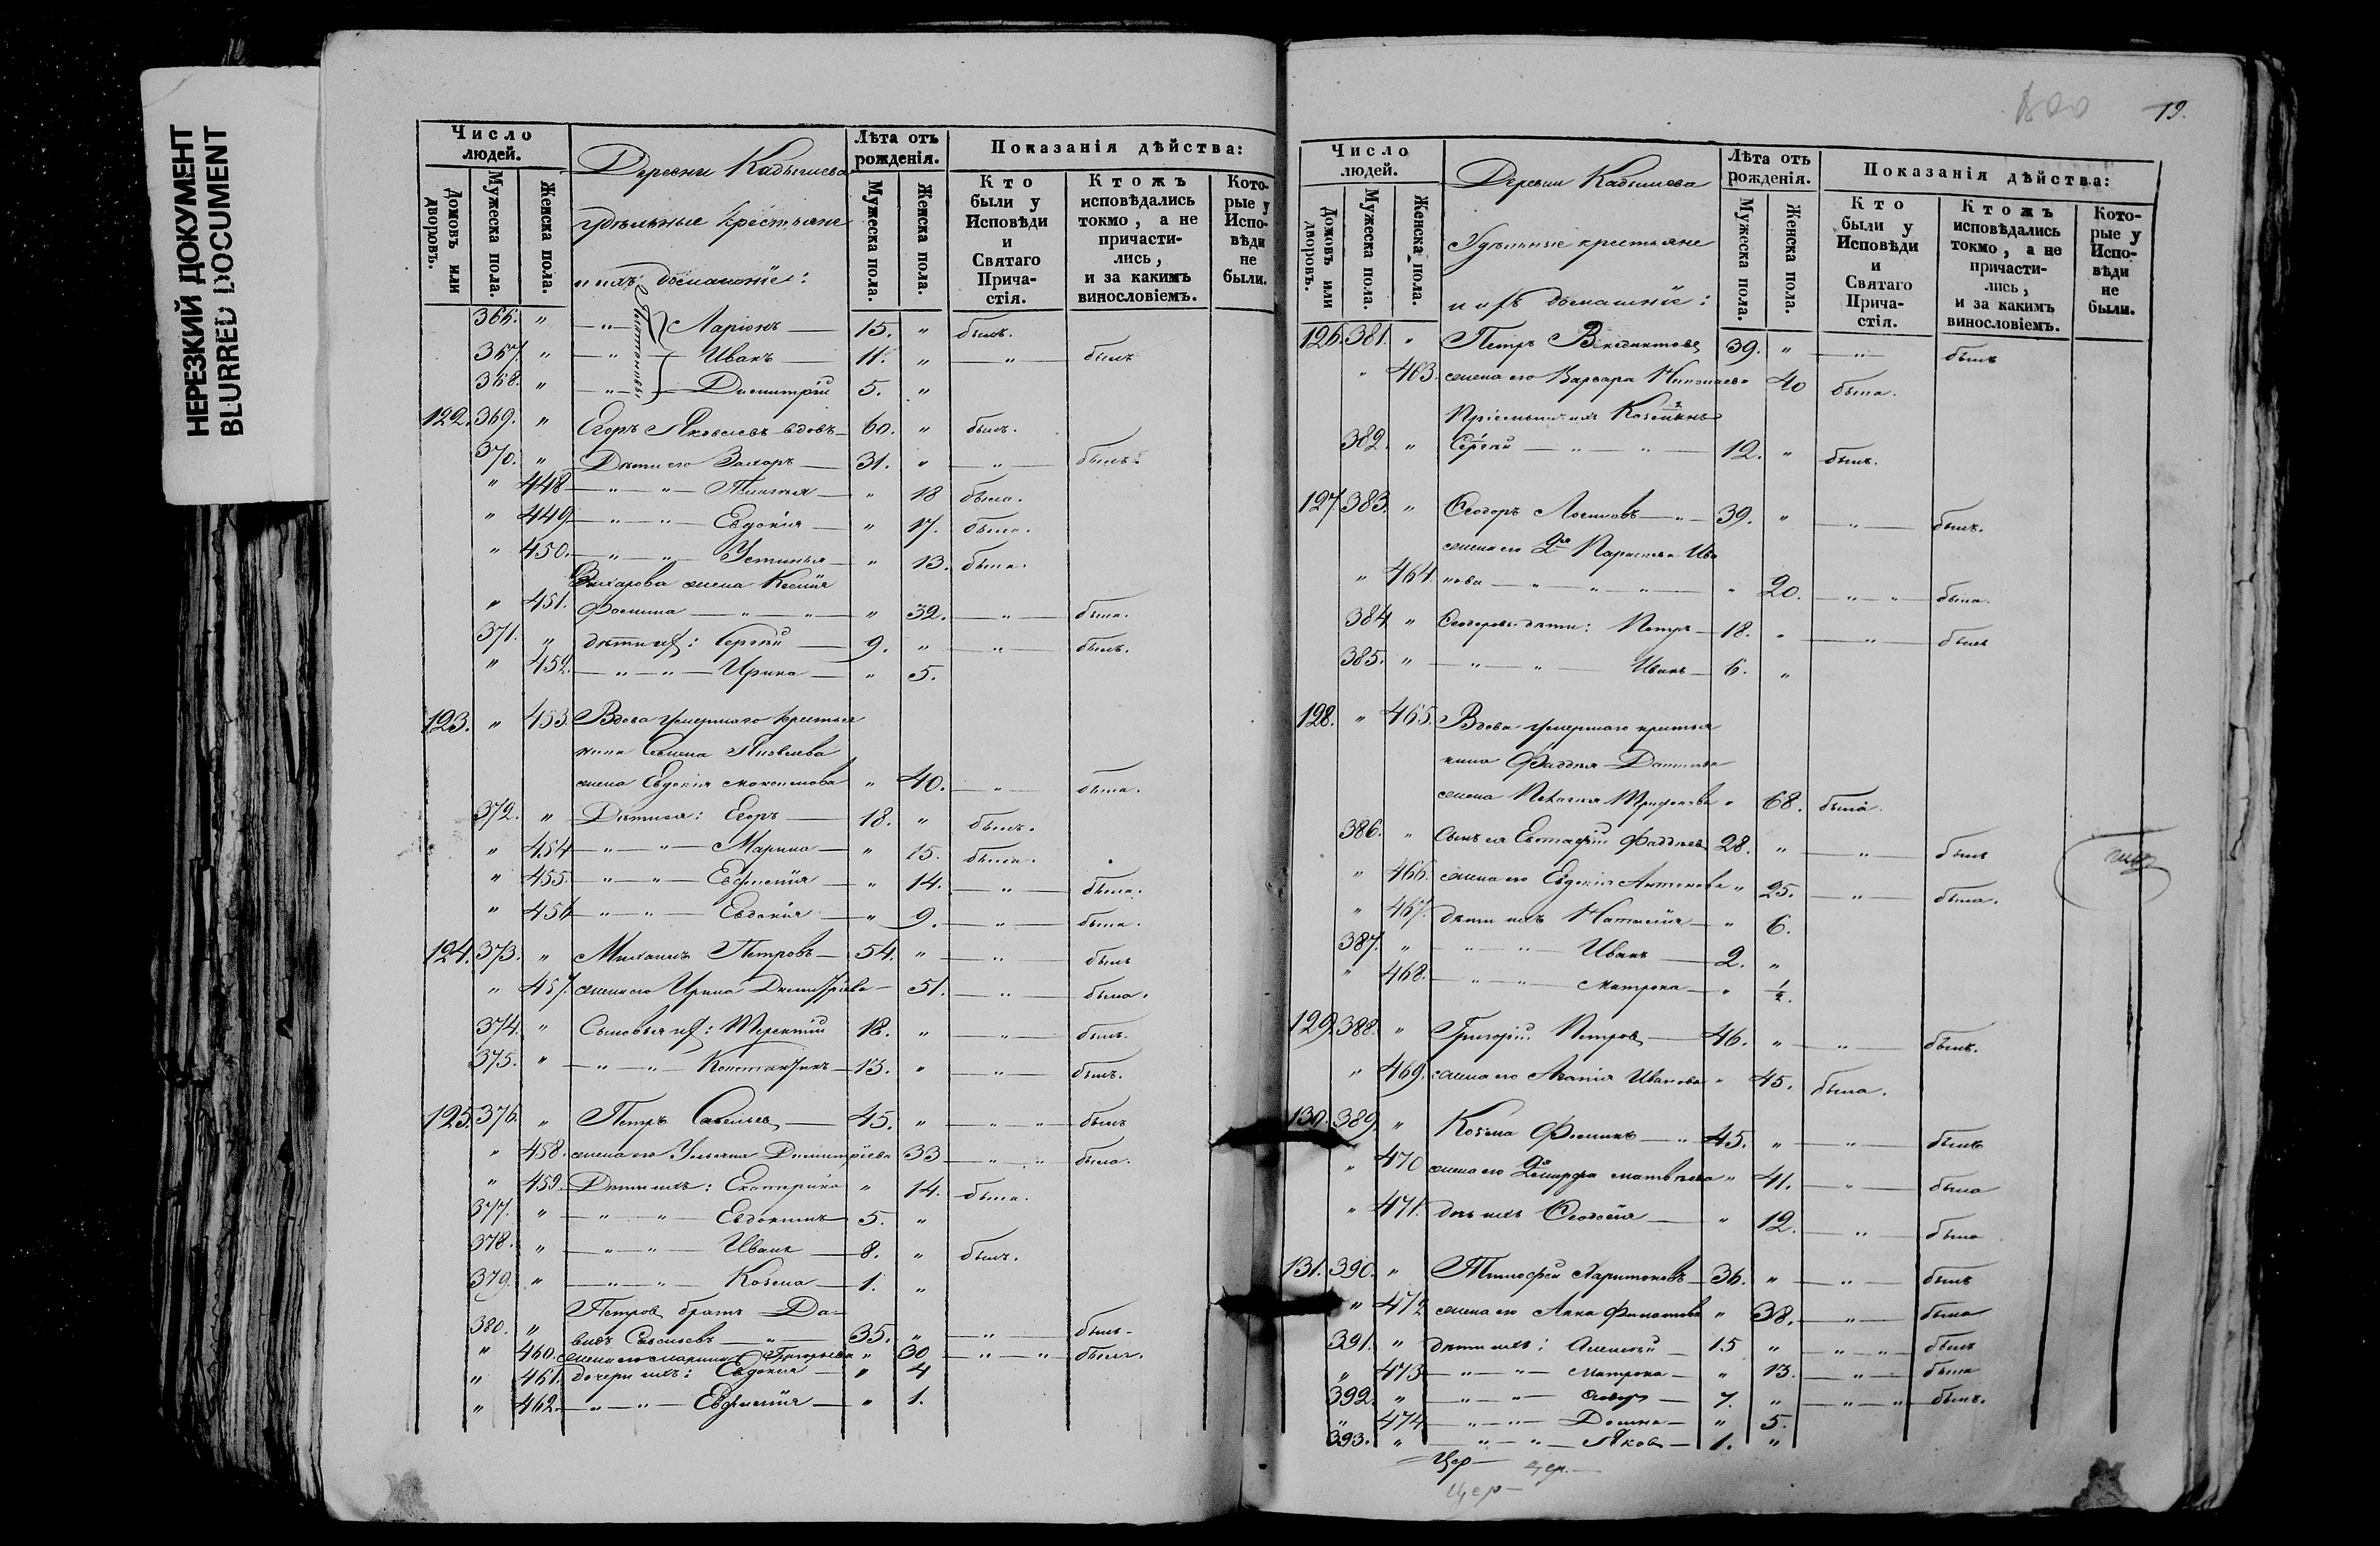 НЕРЕЗКИЙ ДОКУМЕНТ
BLURRED DOCUMENT
Число людей. Деревни Кадышева Лѣта отъ рожденія. Показанія дѣйства:
Домовъ или дворовъ. Мужеска пола. Женска пола. удѣльные крестьяне Мужеска пола. Женска пола. Кто были у Исповѣди и Святаго Прича- стія. Ктожъ исповѣдались токмо, а не причасти- лись, и за какимъ винословіемъ. Кото- рые у Испо- вѣди не были.
и ихъ домашніе:
366. " — " — Ларіонъ — 15. " былъ.
367. " — " — Иванъ 11. " — " — былъ
368. " — " — Димитрій 5. "
122. 369. " Егоръ Яковлевъ вдовъ — 60. " былъ.
370. " Дѣти его Захаръ — 31. " — " — былъ.
" 448 — " — " — — " 18 была.
" 449 — " — " — Евдокія — " 17. была.
" 450. — " — " — Устинья — " 13. была.
Захарова жена Ксенія
" 451. Фомина — " — " — " 32. — " — была.
371. " дѣти их: Сергѣй — 9. " — " — былъ.
" 452. — " — " — Ирина — " 5.
123. " 453. Вдова умершаго крестья
нина Семена Яковлева
жена Евдокія Максимова " 40. — " — была.
372. " Дѣти ея: Егоръ — 18. " былъ.
" 454 — " — " — Марина — " 15. была.
" 455. — " — " — Евфимія — " 14. — " — была.
" 456 — " — " — Евдокія — " 9. — " — была.
124. 373. " Михаилъ Петровъ — 54. " — " — былъ
" 457. жена его Ирина Димитріева — 51. — " — была.
374. " Сыновья их: Терентій 18. " — " — былъ.
375. " — " — " — Константинъ — 13. " — " — былъ.
125. 376. " Петръ Савельев — 45. " — " — " былъ
" 458. жена его Ульяна Димитріева 33 — " — " была.
" 459. Дѣти ихъ: Екатерина " 14. была.
377. " — " — " — Евдокимъ 5. "
378. " — " — " — Иванъ — 8. " былъ.
379. " — " — " — Козма — 1. "
Петров братъ Да-
380. " видъ Савельевъ — " — 35. " — " — былъ.
" 460. жена его Марина Григорьева " 30 — " — " была.
" 461. дочери ихъ: Евдокія — " 4
" 462. — " — " — Евфимія — " 1.
19.
Число людей. Деревни Кадышева Лѣта отъ рожденія. Показанія дѣйства:
Домовъ или дворовъ. Мужеска пола. Женска пола. Удѣльные крестьяне Мужеска пола. Женска пола. Кто были у Исповѣди и Святаго Прича- стія. Ктожъ исповѣдались токмо, а не причасти- лись, и за какимъ винословіемъ. Кото- рые у Испо- вѣди не были.
и их домашніе:
126. 381. " Петръ Венедиктовъ 39. " — " — былъ
" 463. жена его Варвара Николаева 40 была.
Пріемышъ ихъ
382. " Сергѣй — " — " — 12. " былъ.
127 383. " Ѳеодоръ Логиновъ — " — 39. " — " — былъ.
жена его 2я Параскева Ива
" 464. нова — " — " — " — " 20. — " — " была.
384 " Ѳеодоровы дѣти: Петръ — 18. " — " — былъ
385. " — " — " — Иванъ — 6. "
128. " 465. Вдова умершаго крестья
нина Фаддѣя Данилова
жена Пелагія Трифонова " 68. была.
386. " Сынъ ея Евстафій Фаддѣев 28. " — " — былъ
" 466. жена его Евдокія Антонова " 25. — " — была.
" 467. дѣти ихъ Наталія — " 6.
387. " — " — " — Иванъ — 2. "
" 468. — " — " — Матрона — " ½.
129. 388. " Григорій Петров — 46. " — " — былъ.
" 469. жена его Иванова " 45. была.
130. 389. " Козма Фоминъ — " 45. " — " — былъ
" 470 жена его 2я Марѳа Матвѣева " 41. — " — была
" 471. дочь ихъ Ѳеодосія — " 12. — " — была
131. 390. " Тимоѳей Харитоновъ — 36. " — " — былъ
" 472 жена его Анна Филатова " 38. — " — была
391. " дѣти ихъ: Алексѣй — 15 " — " — " былъ
" 473 — " — " — Матрона — " 13. — " — была
392. " — " — " — Ѳеодоръ — 7. " — " — " былъ.
" 474 — " — " — Домна — " 5.
393. " — " — " — Яковъ — 1. "
Цер — цер. —
цер —